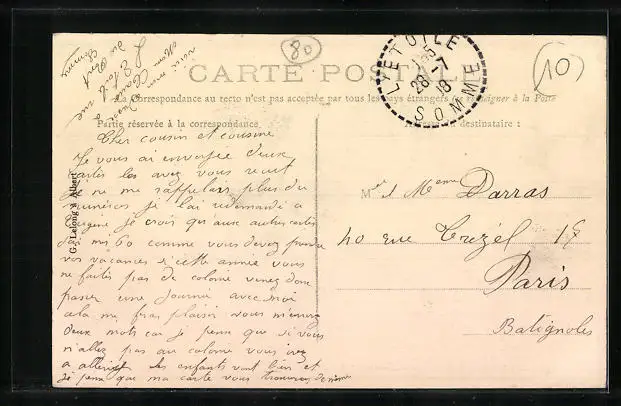 80
L'ETOILE
SOMME
28-7
18
10
CARTE POSTALE
La Correspondance au recto n'est pas acceptée par tous les pays étrangers (Se renseigner à la Poste
Partie réservée à la correspondance
Adresse du destinataire :
G. Lelong à Albert
Cher cousin et cousine
Je vous ai envoyée deux
cartes les avez vous
je ne me rappelais plus du
numéros je l'ai redemandé a
je crois qu'aux autres cartes
mi 60 comme vous devez prendre
vos vacances si cette année vous
ne faites pas de colonie venez donc
passer une journée avec moi
cela me fras plaisir vous
deux mots car je pense que si vous
n'allez pas au colonie vous irez
a les enfants vont bien et
je pense que ma carte vous trouveras de même
Mr et Meme Darras
40 rue Trezel 17
Paris
Batignoles